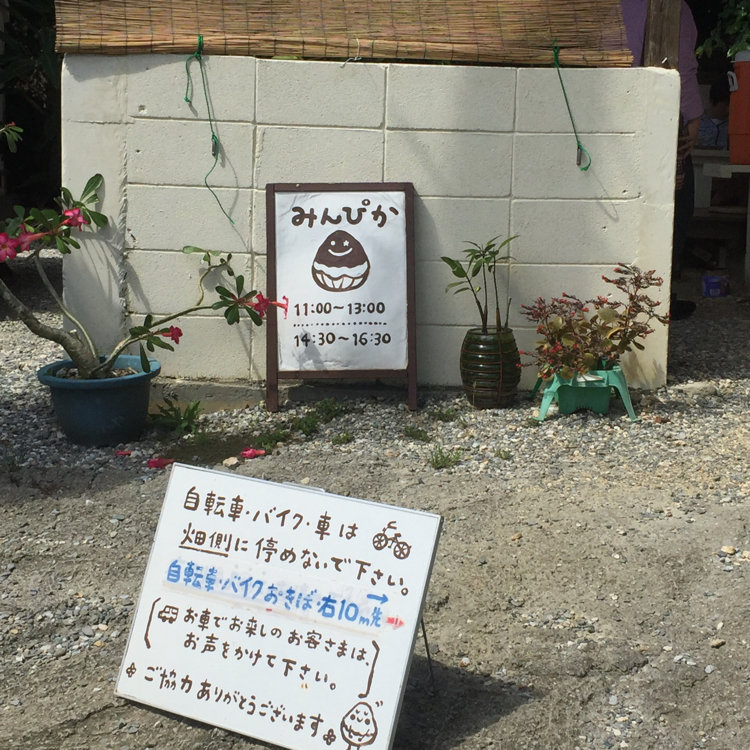 みんぴか
11:00～13:00
14:30～16:30
自転車・バイク・車は
畑側に停めないで下さい。
自転車・バイクおきば・右10m先→
お車でお来しのお客さまは、
お声をかけて下さい。
ご協力ありがとうございます